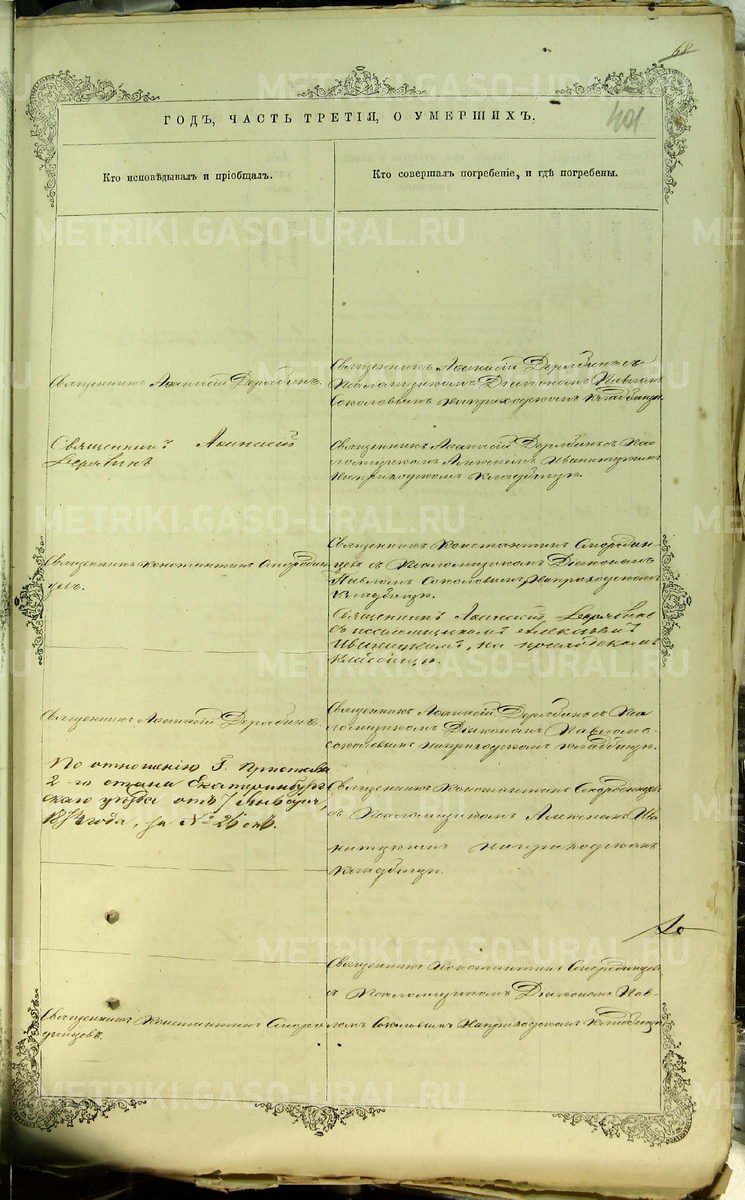 68
401
ГОДЪ, ЧАСТЬ ТРЕТІЯ, О УМЕРШИХЪ.
Кто исповѣдывалъ и пріобщалъ.
Кто совершалъ погребеніе, и гдѣ погребены.
Священникъ Аѳанасій Дерябинъ.
Священникъ Аѳанасій Дерябинъ съ
Псаломщикомъ Діакономъ Павломъ
Соколовымъ на приходскомъ кладбищѣ.
Священникъ Аѳанасій
Дерябинъ
Священникъ Аѳанасій Дерябинъ съ Пса-
ломщикомъ Алексѣемъ Иваницкимъ
на приходскомъ кладбищѣ.
Священникъ Константинъ Смородин-
цевъ.
Священникъ Константинъ Смородин-
цевъ съ Псаломщикомъ Діакономъ
Павломъ Соколовымъ на приходскомъ
кладбищѣ.
Священникъ Аѳанасій Дерябинъ
съ псаломщикомъ Алексѣемъ
Иваницкимъ, на приходскомъ
кладбищѣ.
Священникъ Аѳанасій Дерябинъ.
Священникъ Аѳанасій Дерябинъ съ Пса-
ломщикомъ Діакономъ Павломъ
Соколовымъ на приходскомъ кладбищѣ.
По отношенію Г. Пристава
2-го стана Екатеринбург-
скаго уѣзда отъ 7 Января,
1874 года, за № 26
Священникъ Константинъ Смородинцевъ
съ Псаломщикомъ Алексѣемъ Ива-
ницкимъ на приходскомъ
кладбищѣ.
Священникъ Константинъ Смородинцевъ
съ Псаломщикомъ Діакономъ Пав-
ломъ Соколовымъ на приходскомъ кладбищѣ
Священникъ Константинъ Смородинцевъ.
METRIKI.GASO-URAL.RU